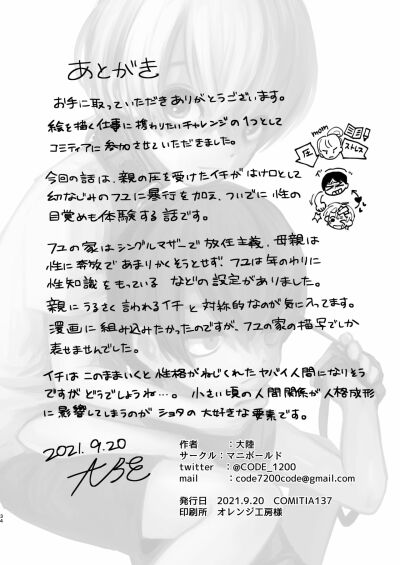 あとがき
お手に取っていただきありがとうございます。
絵を描く仕事に携わりたいチャレンジの1つとして
コミティアに参加させていただきました。
mom
圧
ストレス
今回の話は、親の圧を受けたイチがはけ口として
幼なじみのフユに暴行を加え、ついでに性の
目覚めも体験する話です。
フユの家はシングルマザーで放任主義、母親は
性に奔放であまりかくそうとせず、フユは年のわりに
性知識をもっている などの設定がありました。
親にうるさく言われるイチと対称的なのが気に入ってます。
漫画に組み込みたかったのですが、フユの家の描写でしか
表せませんでした。
イチはこのままいくと性格がねじくれたヤバイ人間になりそう
ですがどうでしょうね…。 小さい頃の人間関係が人格成形
に影響してしまうのがショタの大好きな要素です。
2021.9.20
作者 :大陸
サークル:マニボールド
twitter :@CODE_1200
mail :code7200code@gmail.com
発行日 2021.9.20 COMITIA137
印刷所 オレンジ工房様
34